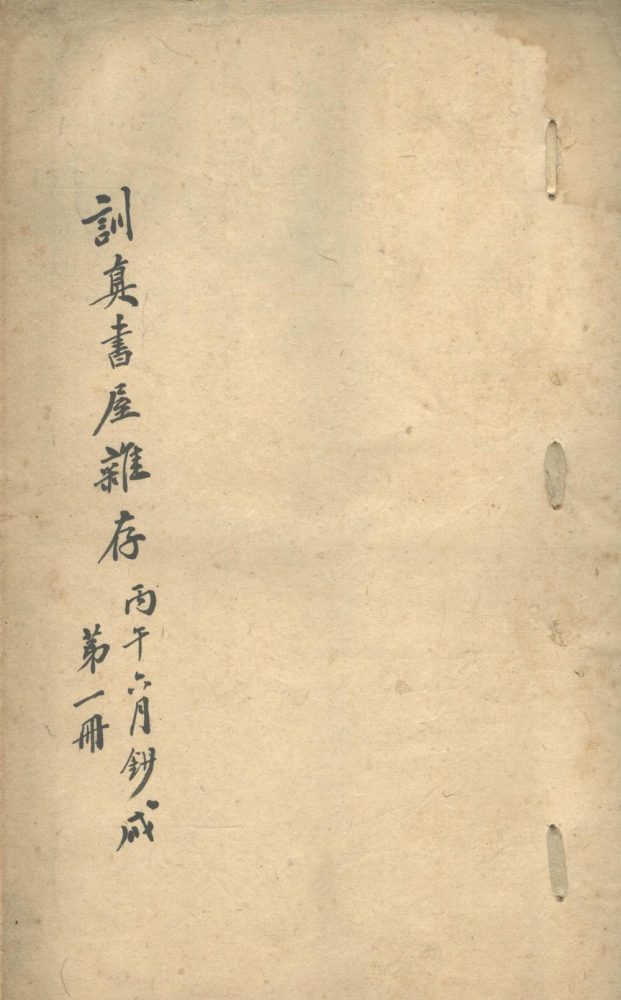 訓真書屋雜存
丙午六月鈔成
第一冊